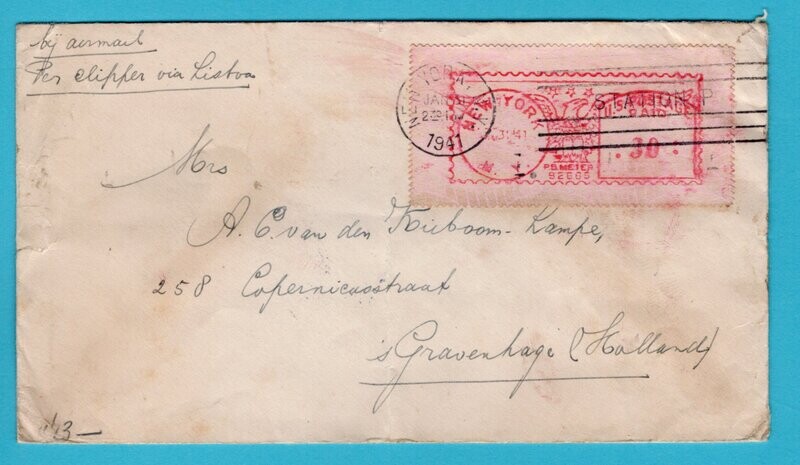 by airmail
Per clipper via Lisboa
NEW YORK, N.Y.
JAN 31
1941
STATION P
NEW YORK
N. Y.
U.S. POSTAGE
PAID
30
P.B. METER
Mrs
A. C. van den Kieboom-Kampe,
258 Copernicusstraat
's Gravenhage (Holland)
3-